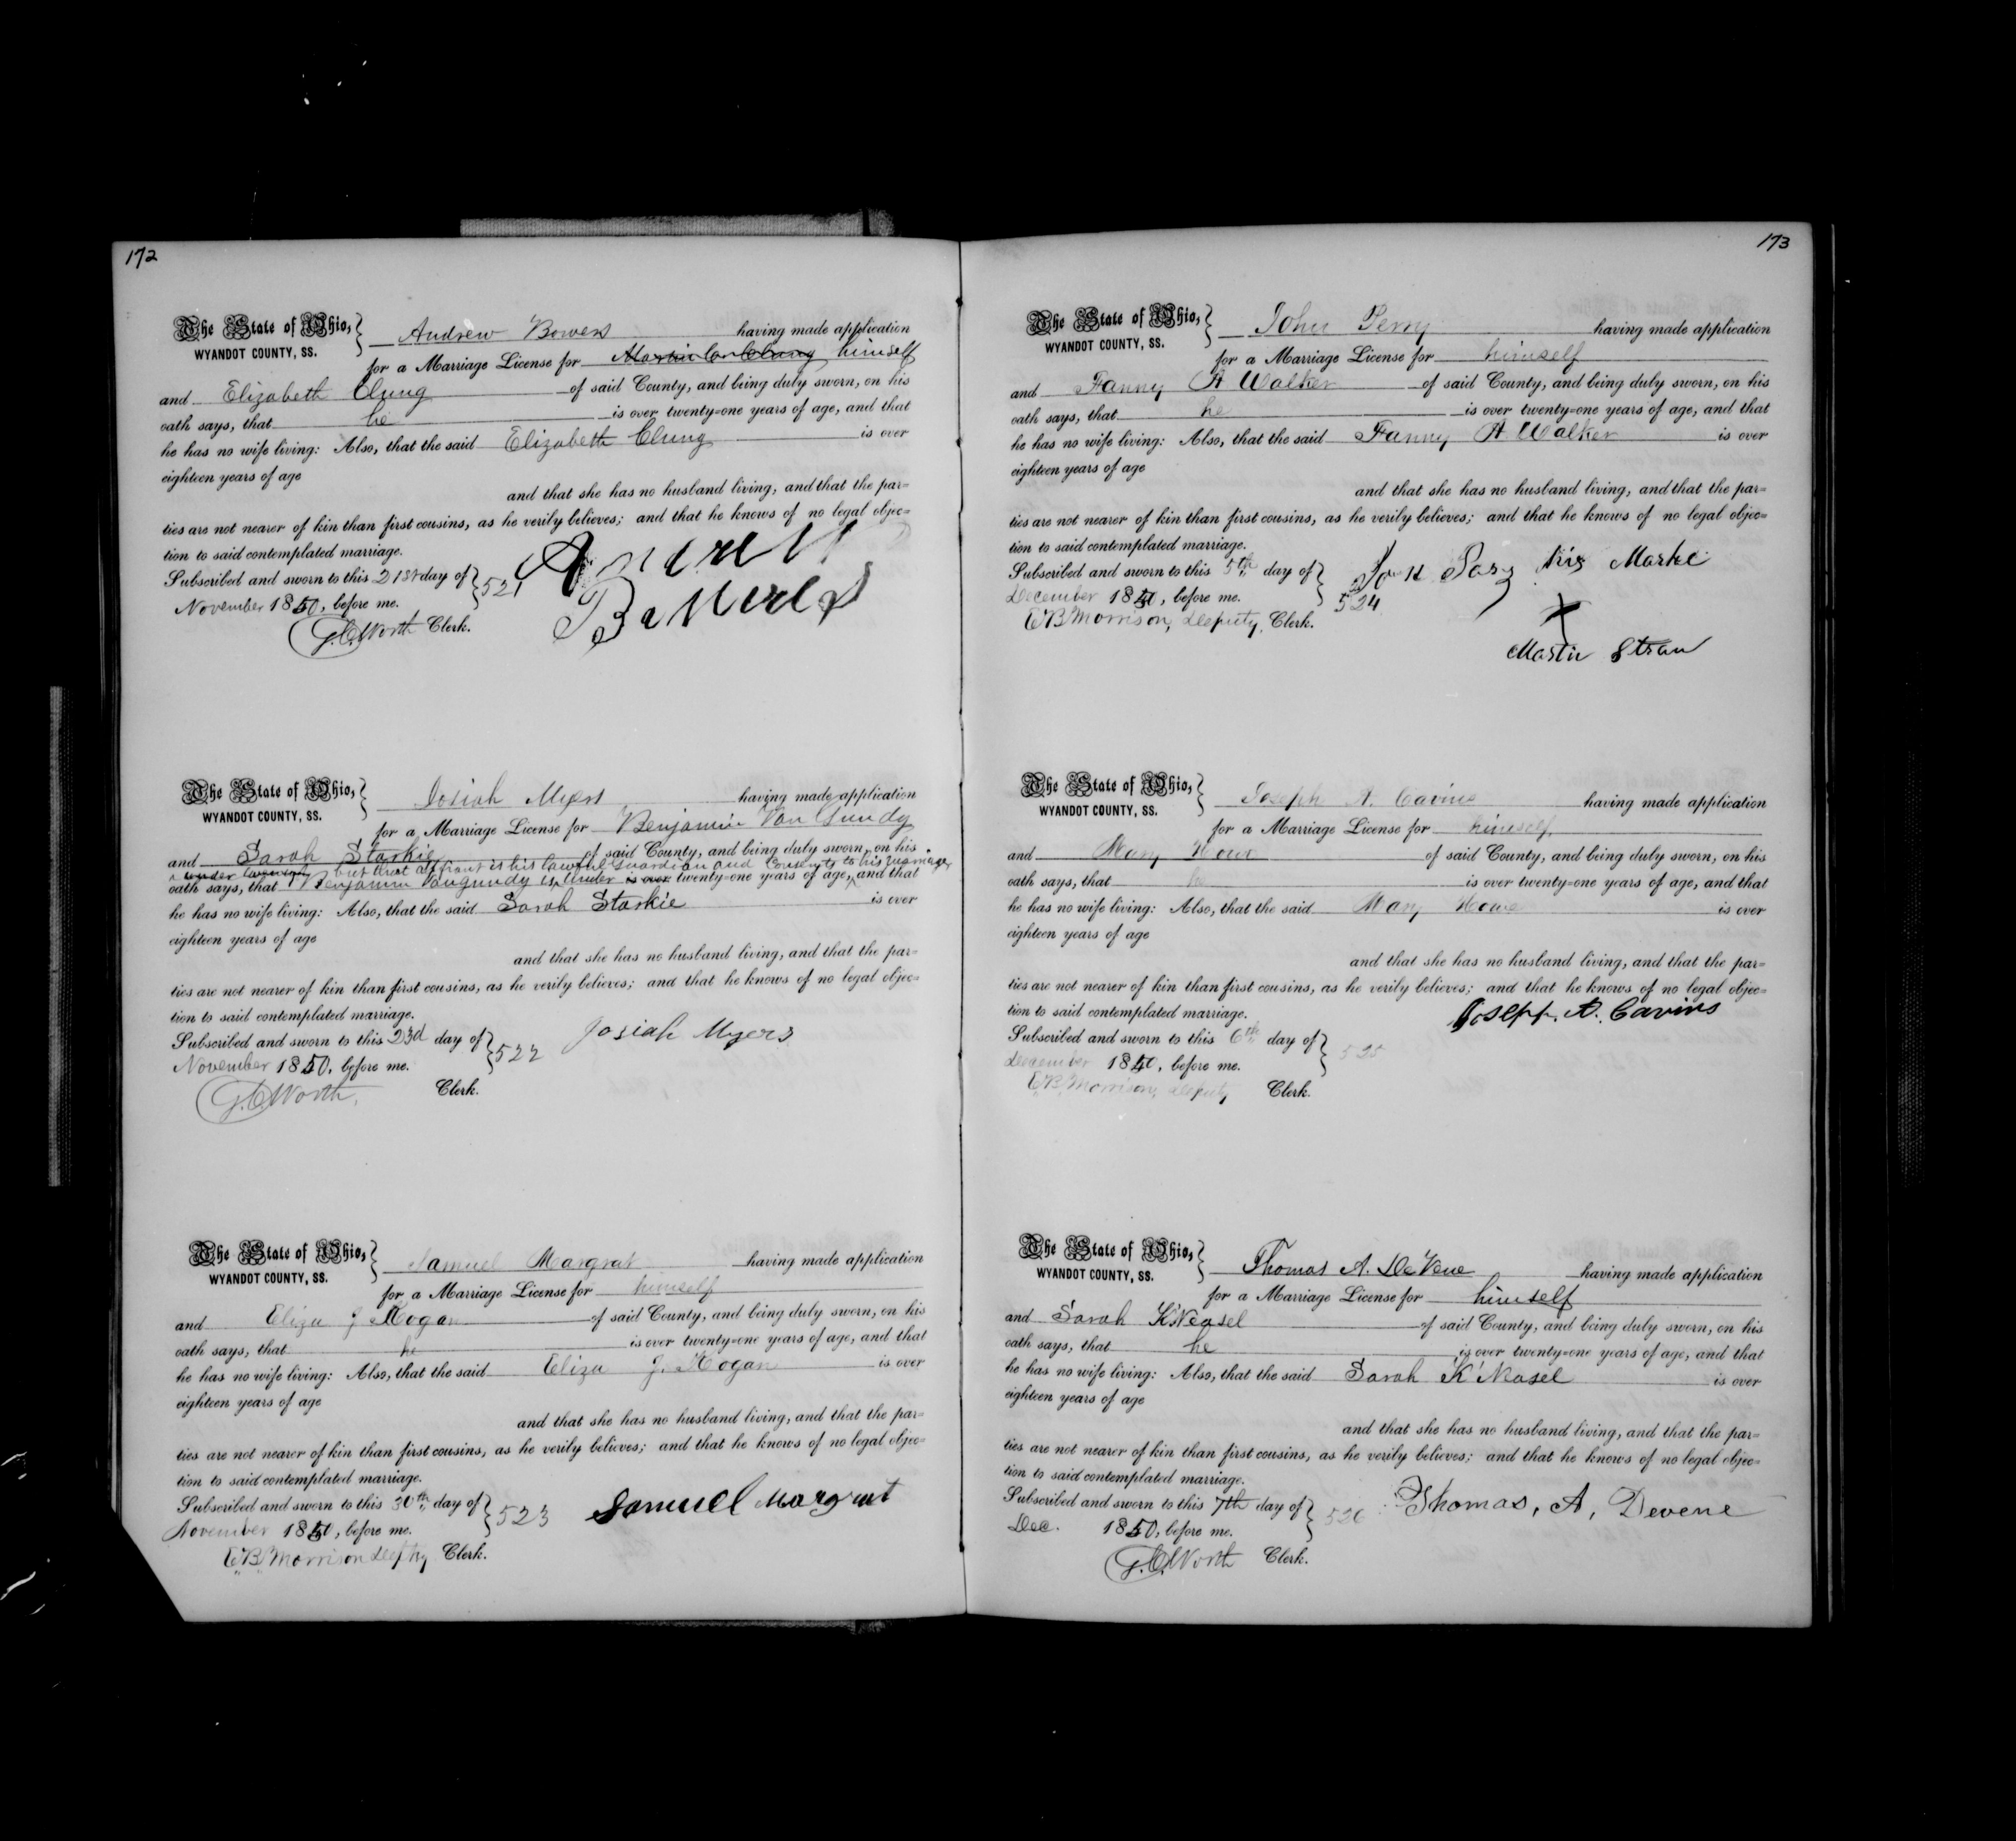 172
The State of Ohio, Andrew Bowers having made application
WYANDOT COUNTY, SS.
for a Marriage License for himself
and Elizabeth Clung of said County, and being duly sworn, on his
oath says, that he is over twenty=one years of age, and that
he has no wife living: Also, that the said Elizabeth Clung is over
eighteen years of age
and that she has no husband living, and that the par=
ties are not nearer of kin than first cousins, as he verily believes; and that he knows of no legal objec=
tion to said contemplated marriage.
Subscribed and sworn to this 21st day of 521
November 1850, before me.
G.C. Worth Clerk.
The State of Ohio, Josiah Myers having made application
WYANDOT COUNTY, SS.
for a Marriage License for Benjamin Van Gundy
and Sarah Starkie of said County, and being duly sworn, on his
but that affiant is his lawful Guardian and Consents to his marriage
oath says, that Benjamin Vangundy is under is over twenty=one years of age, and that
he has no wife living: Also, that the said Sarah Starkie is over
eighteen years of age
and that she has no husband living, and that the par=
ties are not nearer of kin than first cousins, as he verily believes; and that he knows of no legal objec=
tion to said contemplated marriage.
Subscribed and sworn to this 23d day of 522 Josiah Myers
November 1850, before me.
G.C. Worth, Clerk.
The State of Ohio, Samuel Margrat having made application
WYANDOT COUNTY, SS.
for a Marriage License for himself
and Eliza J Hogan of said County, and being duly sworn, on his
oath says, that he is over twenty=one years of age, and that
he has no wife living: Also, that the said Eliza J. Hogan is over
eighteen years of age
and that she has no husband living, and that the par=
ties are not nearer of kin than first cousins, as he verily believes; and that he knows of no legal objec=
tion to said contemplated marriage.
Subscribed and sworn to this 30th day of 523 Samuel Margrat
November 1850, before me.
E.B. Morrison Depty Clerk.
173
The State of Ohio, John Perry having made application
WYANDOT COUNTY, SS.
for a Marriage License for himself
and Fanny A Walker of said County, and being duly sworn, on his
oath says, that he is over twenty=one years of age, and that
he has no wife living: Also, that the said Fanny A Walker is over
eighteen years of age
and that she has no husband living, and that the par=
ties are not nearer of kin than first cousins, as he verily believes; and that he knows of no legal objec=
tion to said contemplated marriage.
Subscribed and sworn to this 5th day of his Marke
December 1850, before me. 524 X
E B Morrison, Deputy, Clerk.
Martin Straw
The State of Ohio, Joseph A. Cavins having made application
WYANDOT COUNTY, SS.
for a Marriage License for himself
and Mary Howe of said County, and being duly sworn, on his
oath says, that he is over twenty=one years of age, and that
he has no wife living: Also, that the said Mary Howe is over
eighteen years of age
and that she has no husband living, and that the par=
ties are not nearer of kin than first cousins, as he verily believes; and that he knows of no legal objec=
tion to said contemplated marriage. Joseph. A. Cavins
Subscribed and sworn to this 6th day of 525
December 1850, before me.
E.B. Morrison, Deputy Clerk.
The State of Ohio, Thomas A. DeVene having made application
WYANDOT COUNTY, SS.
for a Marriage License for himself
and Sarah K'Neasel of said County, and being duly sworn, on his
oath says, that he is over twenty=one years of age, and that
he has no wife living: Also, that the said Sarah K'Neasel is over
eighteen years of age
and that she has no husband living, and that the par=
ties are not nearer of kin than first cousins, as he verily believes; and that he knows of no legal objec=
tion to said contemplated marriage.
Subscribed and sworn to this 7th day of 526 Thomas, A, Devene
Dec. 1850, before me.
G.C. Worth Clerk.